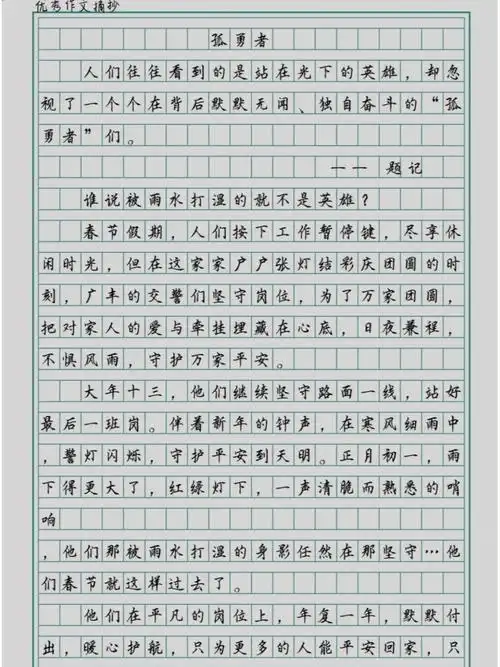 优秀作文摘抄
孤勇者
人们往往看到的是站在光下的英雄，却忽
视了一个个在背后默默无闻、独自奋斗的“孤
勇者”们。
——题记
谁说被雨水打湿的就不是英雄？
春节假期，人们按下工作暂停键，尽享休
闲时光，但在这家家户户张灯结彩庆团圆的时
刻，广丰的交警们坚守岗位，为了万家团圆，
把对家人的爱与牵挂埋藏在心底，日夜兼程，
不惧风雨，守护万家平安。
大年十三，他们继续坚守路面一线，站好
最后一班岗。伴着新年的钟声，在寒风细雨中
，警灯闪烁，守护平安到天明。正月初一，雨
下得更大了，红绿灯下，一声清脆而熟悉的哨
响
，他们那被雨水打湿的身影任然在那坚守…他
们春节就这样过去了。
他们在平凡的岗位上，年复一年，默默付
出，暖心护航，只为更多的人能平安回家，只